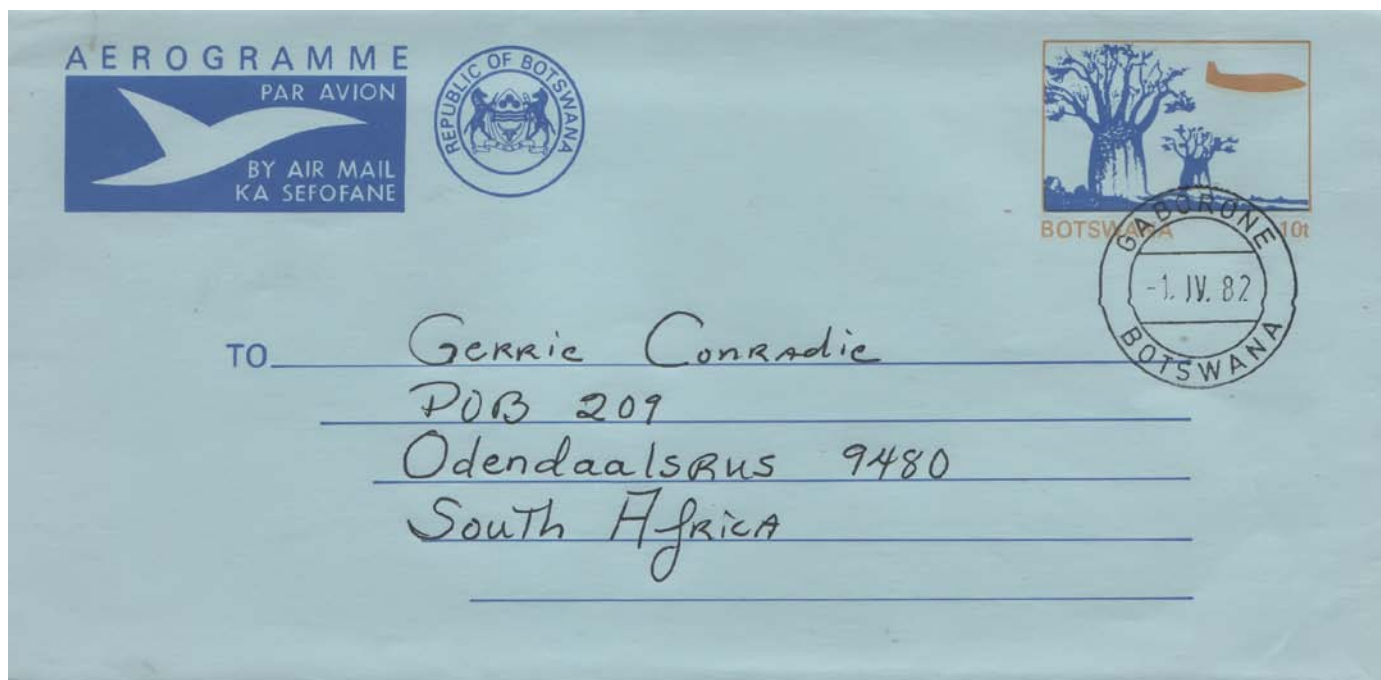 AEROGRAMME
PAR AVION
BY AIR MAIL
KA SEFOFANE
REPUBLIC OF BOTSWANA
BOTSWANA 10t
GABORONE
-1. IV. 82
BOTSWANA
TO Gerrie Conradie
POB 209
Odendaalsrus 9480
South Africa